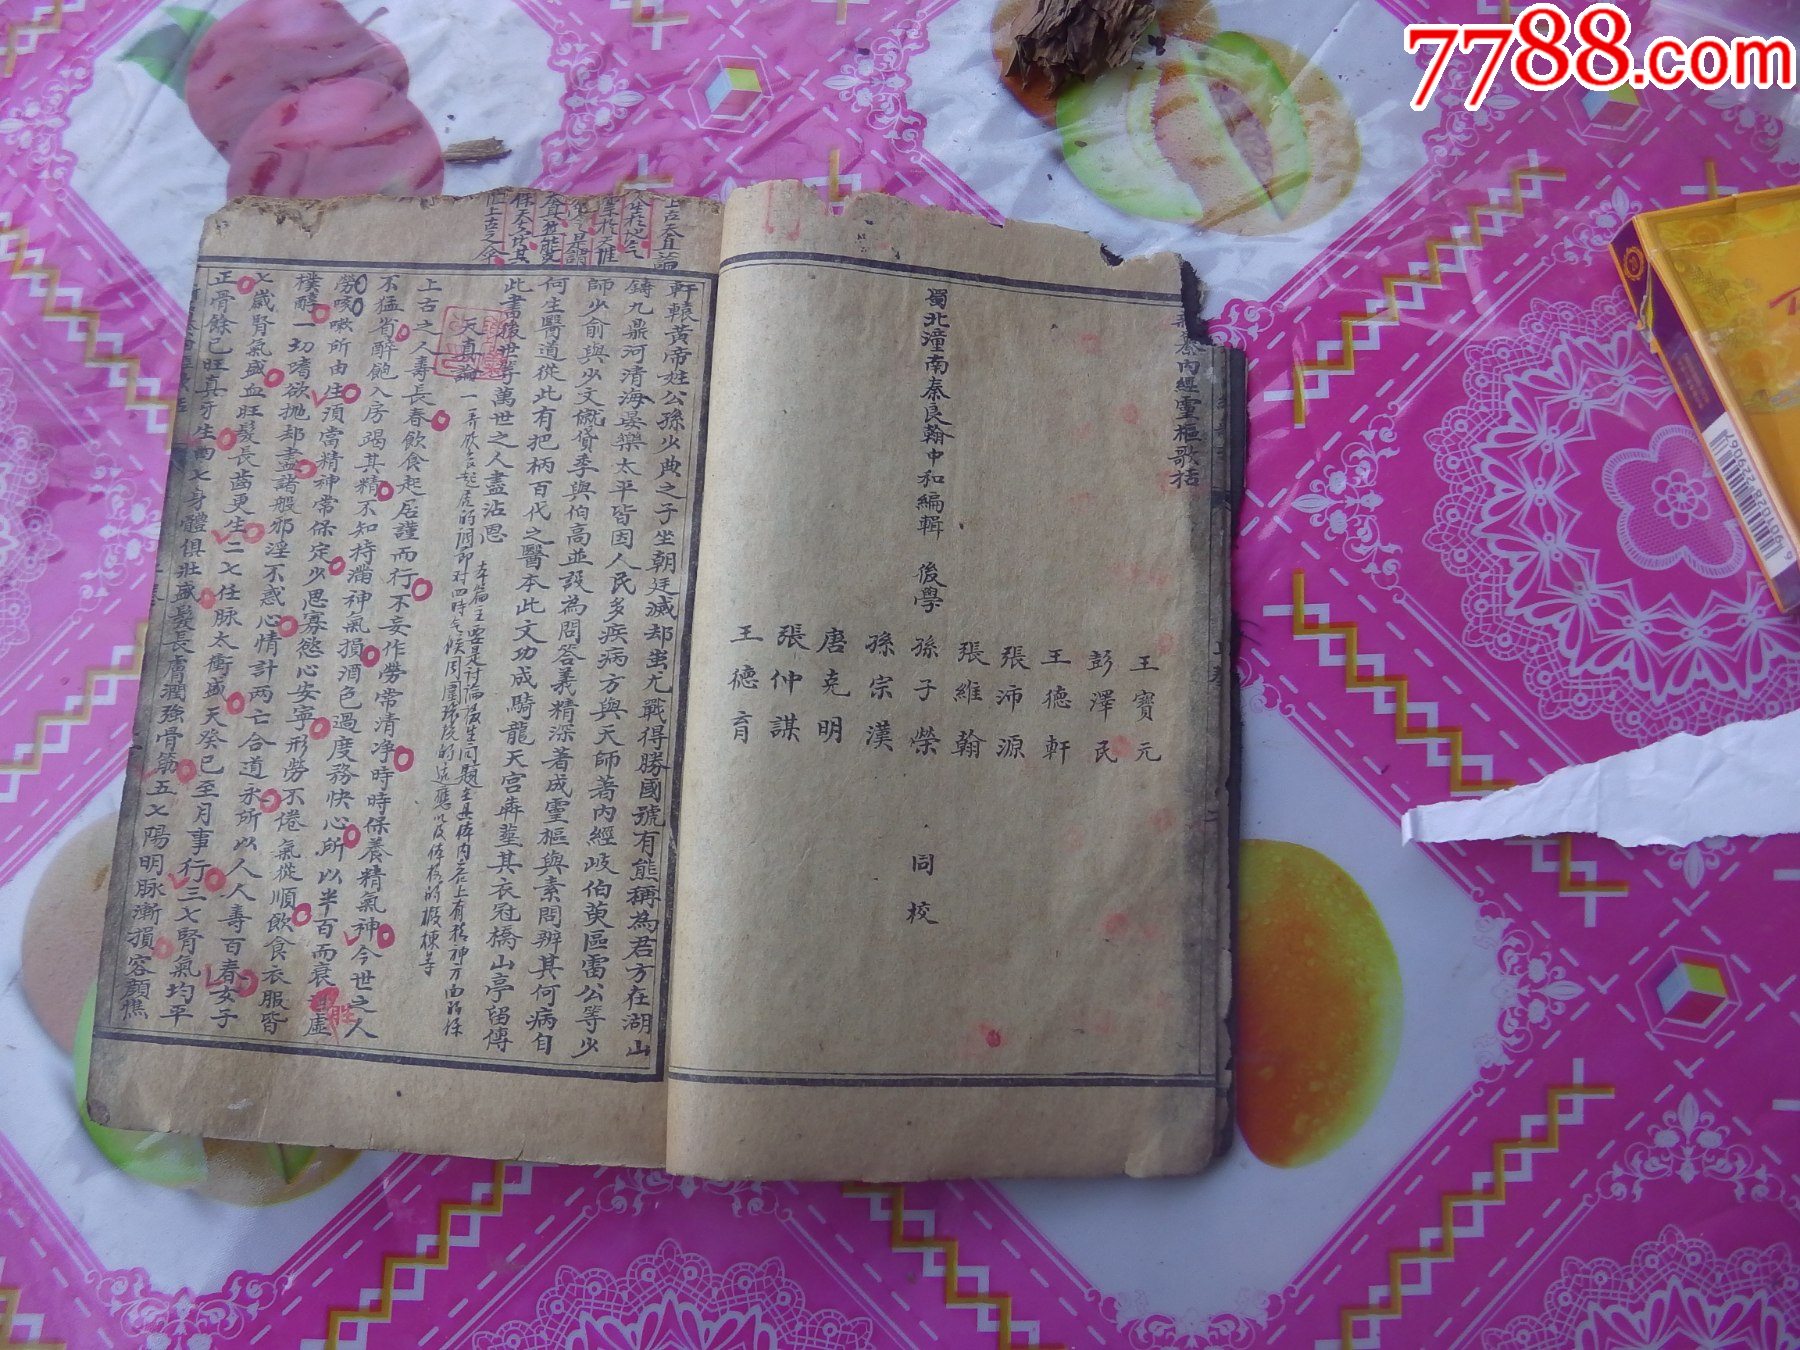 7788.com
內經靈樞歌括
蜀北潼南秦良翰中和編輯 後學
王寶元
彭澤民
王德軒
張沛源
張維翰
孫子榮
孫宗漢
唐堯明
張仲謀
王德育
同校
上古天真論
軒轅黃帝姓公孫少典之子坐朝廷滅却蚩尤戰得勝國號有熊稱為君方在湖山
鑄九鼎河清海晏樂太平皆因人民多疾病方與天師著內經岐伯萸區雷公等少
師少俞與少文僦貸季與伯高並設為問答義精深著成靈樞與素問辨其何病自
何生醫道從此有把柄百代之醫本此文功成騎龍天宮奔塟其衣冠橋山亭留傳
此書後世等萬世之人盡沾恩
天真論
本篇主要是討論養生問題並具体內容上有精神方面的保
對四時气候周圍環境的适應以及体格的鍛煉等
上古之人壽長春飲食起居謹而行不妄作勞常清净時時保養精氣神今世之人
不猛省醉飽入房竭其精不知持滿神氣損酒色過度務快心所以半百而衰
勞咳嗽所由生須當精神常保定少思寡慾心安寧形勞不倦氣從順飲食衣服皆
樸醇一切嗜欲拋却盡諸般邪淫不惑心情計兩亡合道永所以人人壽百春女子
七歲腎氣盛血旺髮長齒更生二七任脉太衝盛天癸已至月事行三七腎氣均平
正骨餘已旺真牙生四七身體俱壯盛髮長膚潤強骨筋五七陽明脉漸損容顏憔